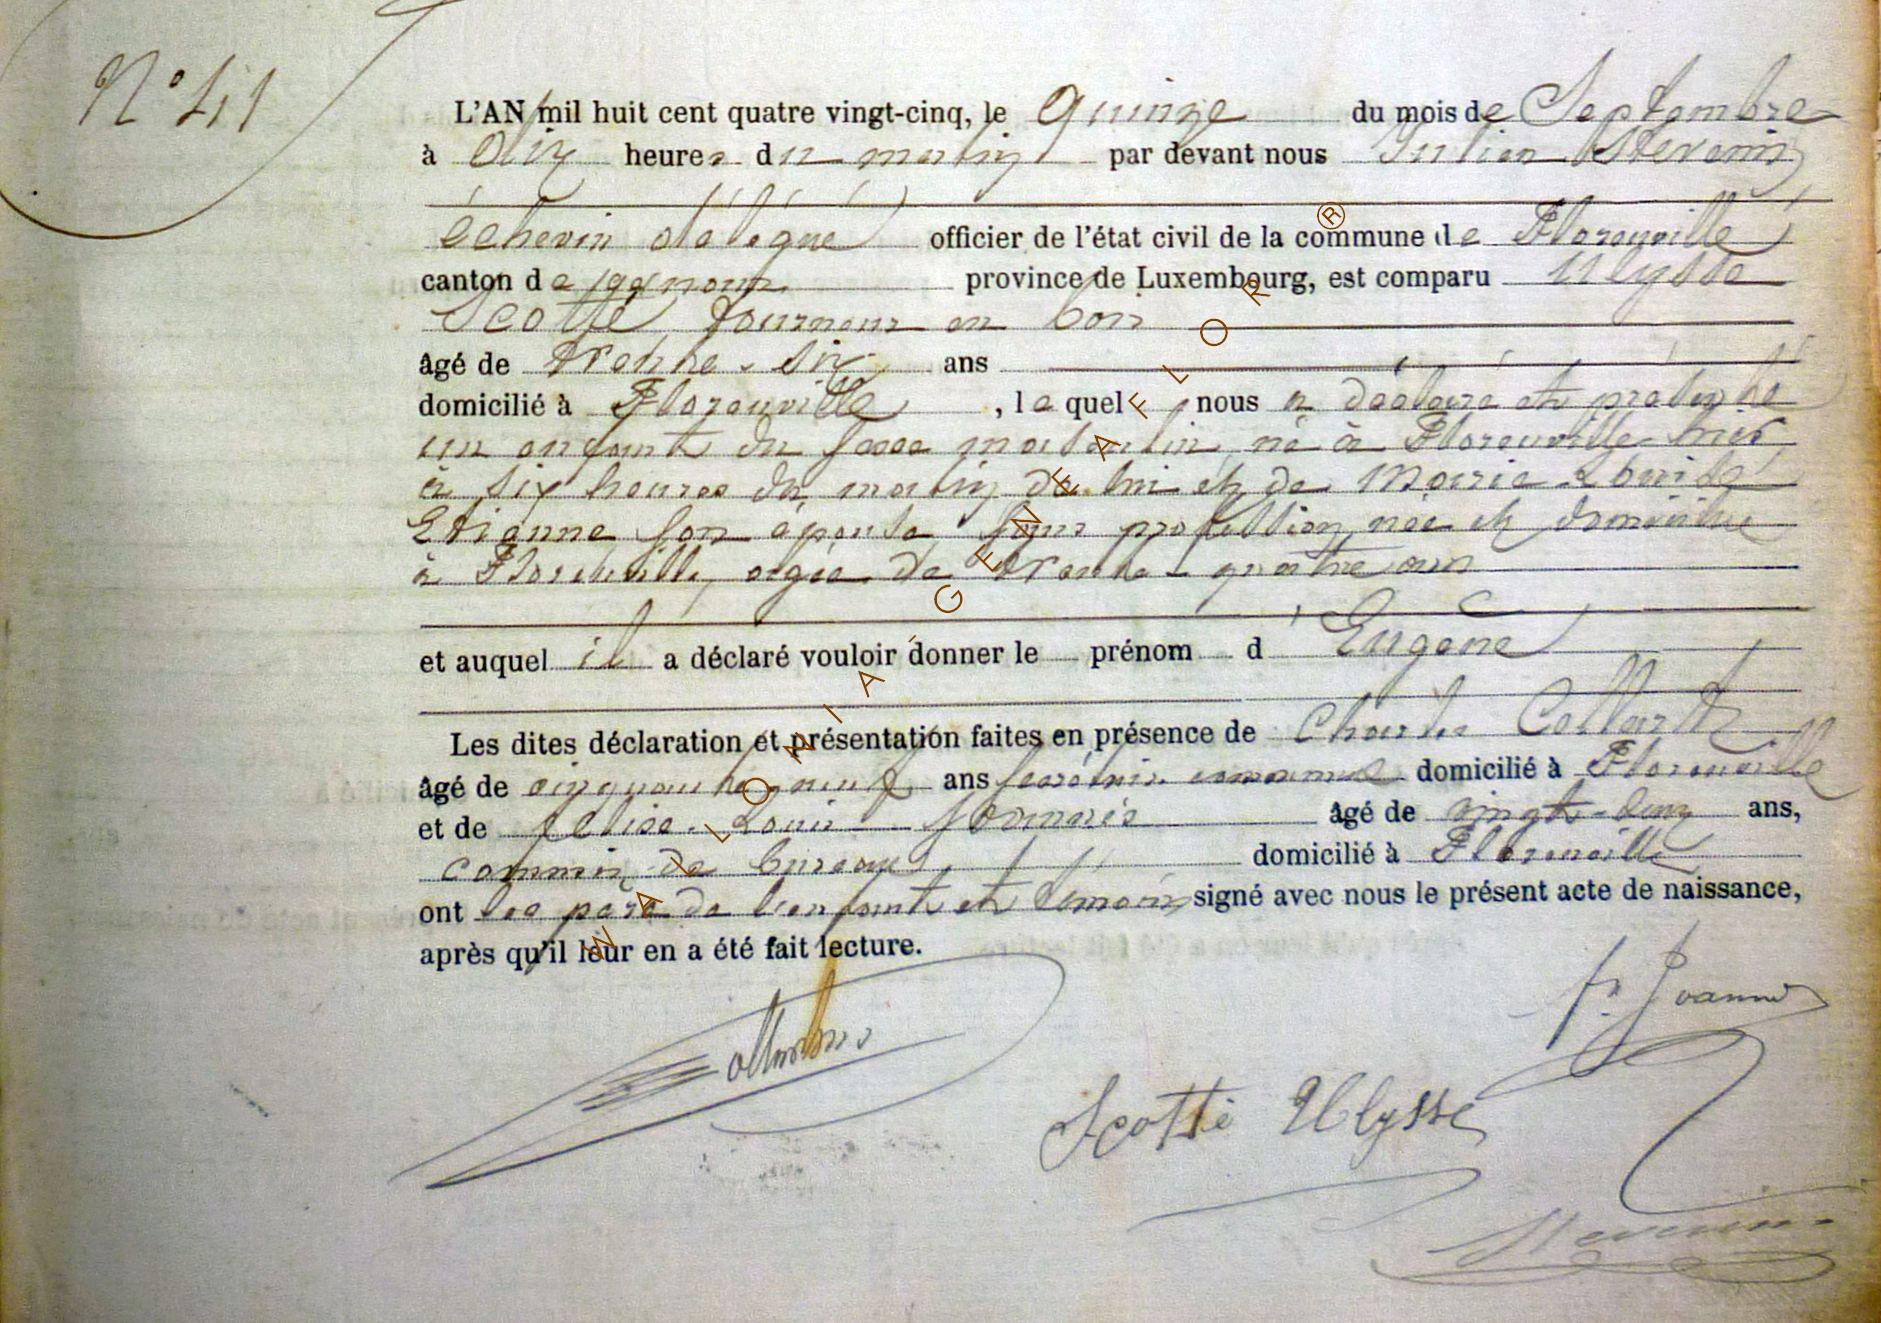 N° 41
L'AN mil huit cent quatre vingt-cinq, le quinze du mois de Septembre
à dix heures du matin par devant nous Julien Stevenin
échevin délégué officier de l'état civil de la commune de Florenville
canton de province de Luxembourg, est comparu Ulysse
Scotti tourneur en bois
âgé de trente-six ans
domicilié à Florenville, lequel nous a déclaré et présenté
un enfant du sexe masculin, né à Florenville hier
à six heures du matin de lui et de Marie-Louise
Etienne son épouse sans profession née et domiciliée
à Florenville, âgée de trente-quatre ans
et auquel il a déclaré vouloir donner le prénom d'Eugène
Les dites déclaration et présentation faites en présence de Charles Collard
âgé de cinquante-neuf ans domicilié à Florenville
et de Louis âgé de vingt-deux ans,
commis de bureau domicilié à Florenville
ont les père de l'enfant et témoins signé avec nous le présent acte de naissance,
après qu'il leur en a été fait lecture.
Scotti Ulysse
Stevenin
WALLONIA-GENEAFLOR ®